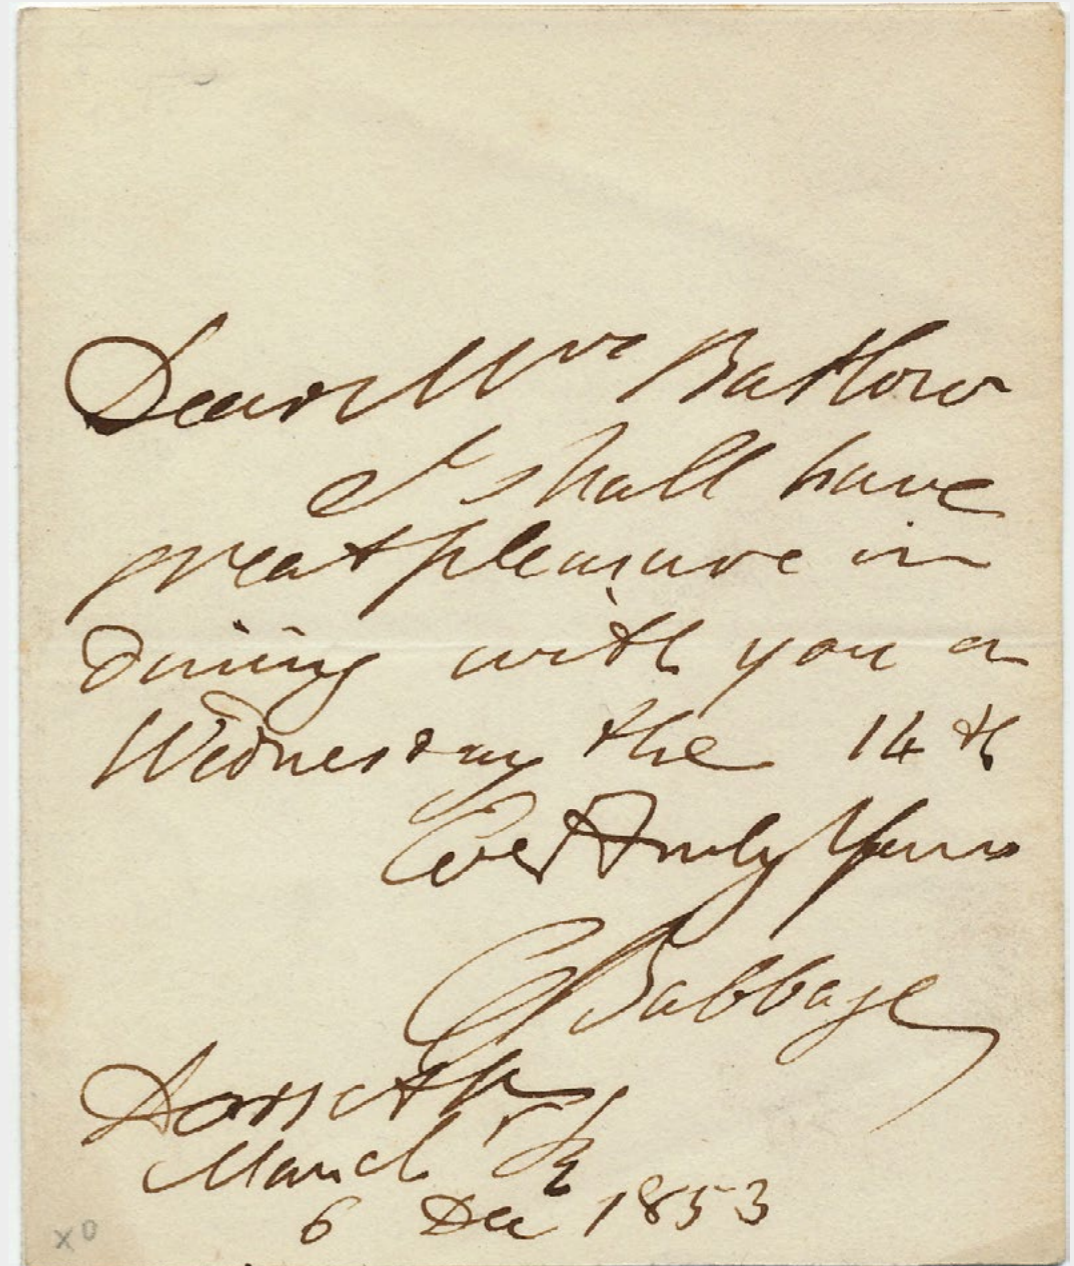 Dear Mrs Barlow
I shall have
great pleasure in
Dining with you on
Wednesday the 14th
Ever Truly Yours
C Babbage
Dorset St
Manch Sq
6 Dec 1853
xo